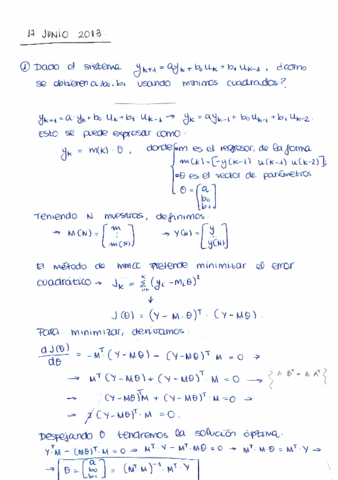 17 JUNIO 2013.
① Dado el sistema y_{k+1} = ay_k + b_0u_k + b_1u_{k-1}, ¿cómo
se obtienen a, b_0, b_1 usando mínimos cuadrados?
y_{k+1} = a y_k + b_0 u_k + b_1 u_{k-1} → y_k = ay_{k-1} + b_0u_{k-1} + b_1u_{k-2}
Esto se puede expresar como:
y_k = m(k)·θ, donde m es el regresor, de la forma
m(k) = [-y(k-1) u(k-1) u(k-2)],
θ es el vector de parámetros
θ = [a b_0 b_1]
Teniendo N muestras, definimos:
→ M(N) = [m ⋮ m(N)] → Y(N) = [y ⋮ y(N)]
El método de mmcc pretende minimizar el error
cuadrático → J_k = Σ (y_i - m_iθ)²
↓
J(θ) = (Y - M·θ)^T · (Y - Mθ).
Para minimizar, derivamos:
dJ(θ)/dθ = -M^T (Y-Mθ) - (Y-Mθ)^T·M = 0 →
→ M^T (Y-Mθ) + (Y-Mθ)^T·M = 0 → {A B^T = B A^T}
→ (Y-Mθ)^T M + (Y-Mθ)^T·M = 0 →
→ 2(Y-Mθ)^T·M = 0.
Despejando θ tendremos la solución óptima:
Y^T M - (Mθ)^T·M = 0 → M^T·Y - M^T·Mθ = 0 → M^T·M·θ = M^T·Y →
→ θ = [a b_0 b_1] = (M^T M)^{-1}·M^T·Y